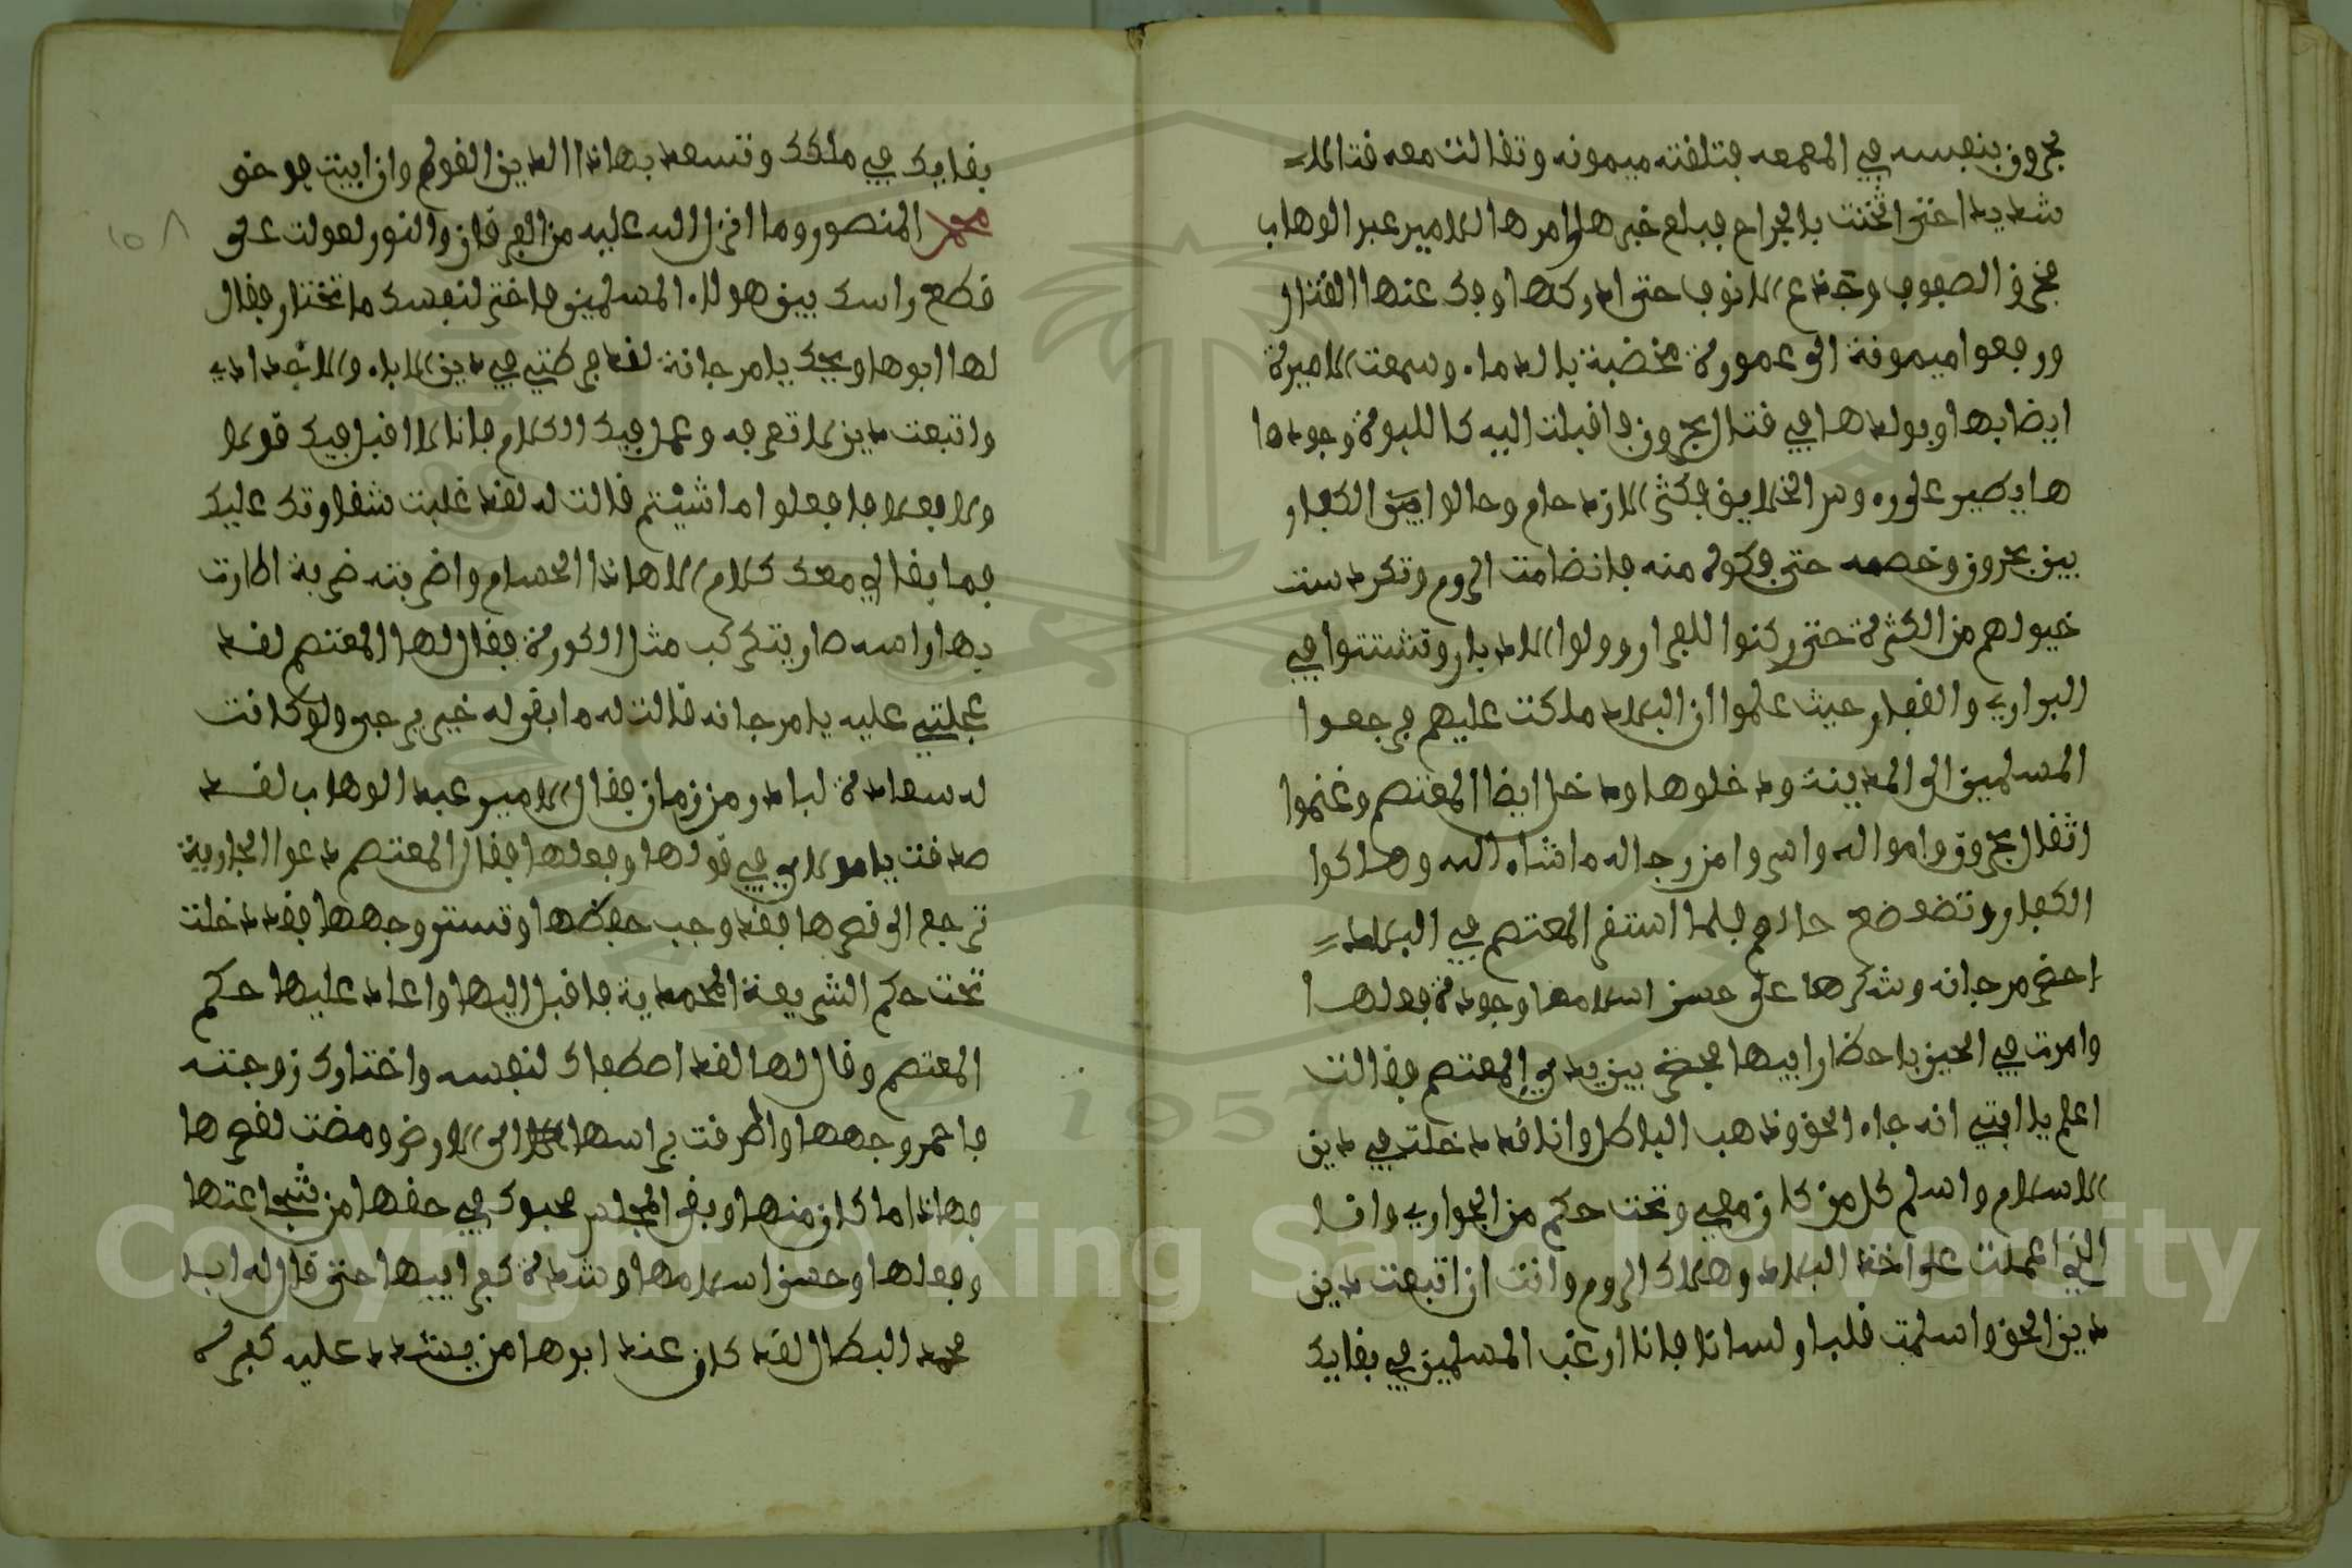 بحرون بنفسه في المعمعه فتلقته ميمونه وتقاتلت معه قتالا
شديدا حتى اثخنت بالجراح فبلغ خبرها وامرها الامير عبد الوهاب
فخرق الصفوف وجدع الانوف حتى ادركها وفك عنها القتال
ورفعوا ميمونة الى عمورة مخضبة بالدماء وسمعت الاميرة
ايضا بها وبولدها في قتال بحرون فاقبلت اليه كاللبوة وجودها
يطير على روس الخلايق فكثر الازدحام وحالوا الكفار
بين بحرون وخصمه حتى فكوه منه فانضامت الروم وتكردست
خيولهم من الكثرة حتى ركنوا للفرار وولوا الادبار وتشتتوا في
البواري والقفار حيث علموا ان البلاد ملكت عليهم فرجعوا
المسلمين الى المدينة ودخلوها ودخل ايضا المعتصم وغنموا
اثقال بحرون وامواله واسروا من رجاله ما شاء الله وهلكوا
الكفار وتضعضع حالهم فلما استقر المعتصم في البلاد
احضر مرجانه وشكرها على حسن اسلامها وجودة فعلها
وامرت في الحين باحظار ابيها فحضر بين يدي المعتصم وقالت
اعلم يا ابتي انه جاء الحق وذهب الباطل وانا قد دخلت في دين
الاسلام واسلم كل من كان معي وتحت حكم من الجواري وانا
التي اعملت على اخذ البلاد وهلاك الروم وانت ان اتبعت دين
دين الحق واسلمت قلبا ولسانا فانا ارغب المسلمين في بقايك
بقايك في ملكك وتسعد بهاذا الدين القويم وان ابيت فوحق
محمد المنصور وما انزل الله عليه من الفرقان والنور لعولت على
قطع راسك بين هولاء المسلمين فاختر لنفسك ما تختار فقال
لها ابوها ويحك يا مرجانة لقد فركتي في دين الاباء والاجداد
واتبعت دين لا تعرفه وعمل فيك الكلام فانا لا اقبل فيك قولا
ولا فعلا فافعلوا ما شيتم قالت له لقد غلبت شقاوتك عليك
فما بقا لي معك كلام الا هاذا الحسام واضربته ضربة اطارت
بها راسه صار يتكركب مثل الكورة فقال لها المعتصم لقد
عجلتي عليه يا مرجانه قالت له ما بقى له خير يرجى ولو كانت
له سعادة لبادر من زمان فقال الامير عبد الوهاب لقد
صدقت يا مولاي في قولها وفعلها فقال المعتصم دعوا الجارية
ترجع الى قصرها فقد وجب حفظها وتستر وجهها فقد دخلت
تحت حكم الشريعة المحمدية فاقبل اليها واعاد عليها حكم
المعتصم وقال لها لقد اصطفاك لنفسه واختارك زوجته
فاحمر وجهها واطرقت براسها الى الارض ومضت لقصرها
فهاذا ما كان منها وبقى المجلس محبوك في حقها من شجاعتها
وفعلها وحسن اسلامها وشدة كفر ابيها حتى قال له ابا
محمد البطال لقد كان عند ابوها من يشدد عليه كفره